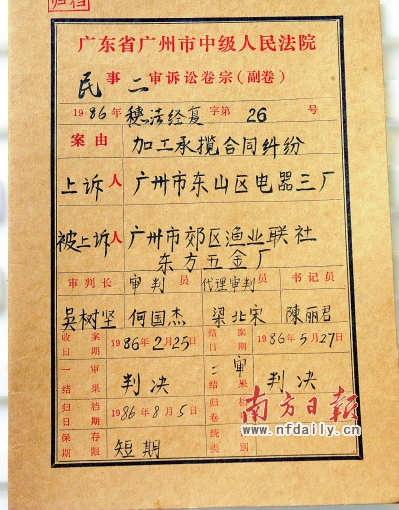 归档
广东省广州市中级人民法院
民事二审诉讼卷宗(副卷)
1986年穗法经复字第26号
案由 加工承揽合同纠纷
上诉人 广州市东山区电器三厂
被上诉人 广州市郊区渔业联社
东方五金厂
审判长 审判员 代理审判员 书记员
吴树坚 何国杰 梁北宋 陳丽君
收案日期 1986年2月25日 结案日期 1986年5月27日
一审结果 判决 二审结果 判决
归档日期 1986年8月5日 归卷统类别
保存期限 短期
南方日报
www.nfdaily.cn